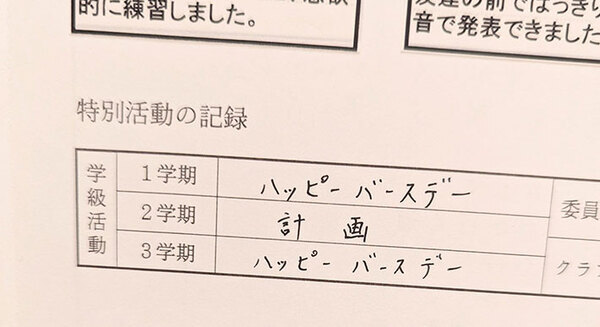 的に練習しました。
音で発表できました
特別活動の記録
学級活動
1学期
ハッピーバースデー
2学期
計画
3学期
ハッピーバースデー
委員
クラ